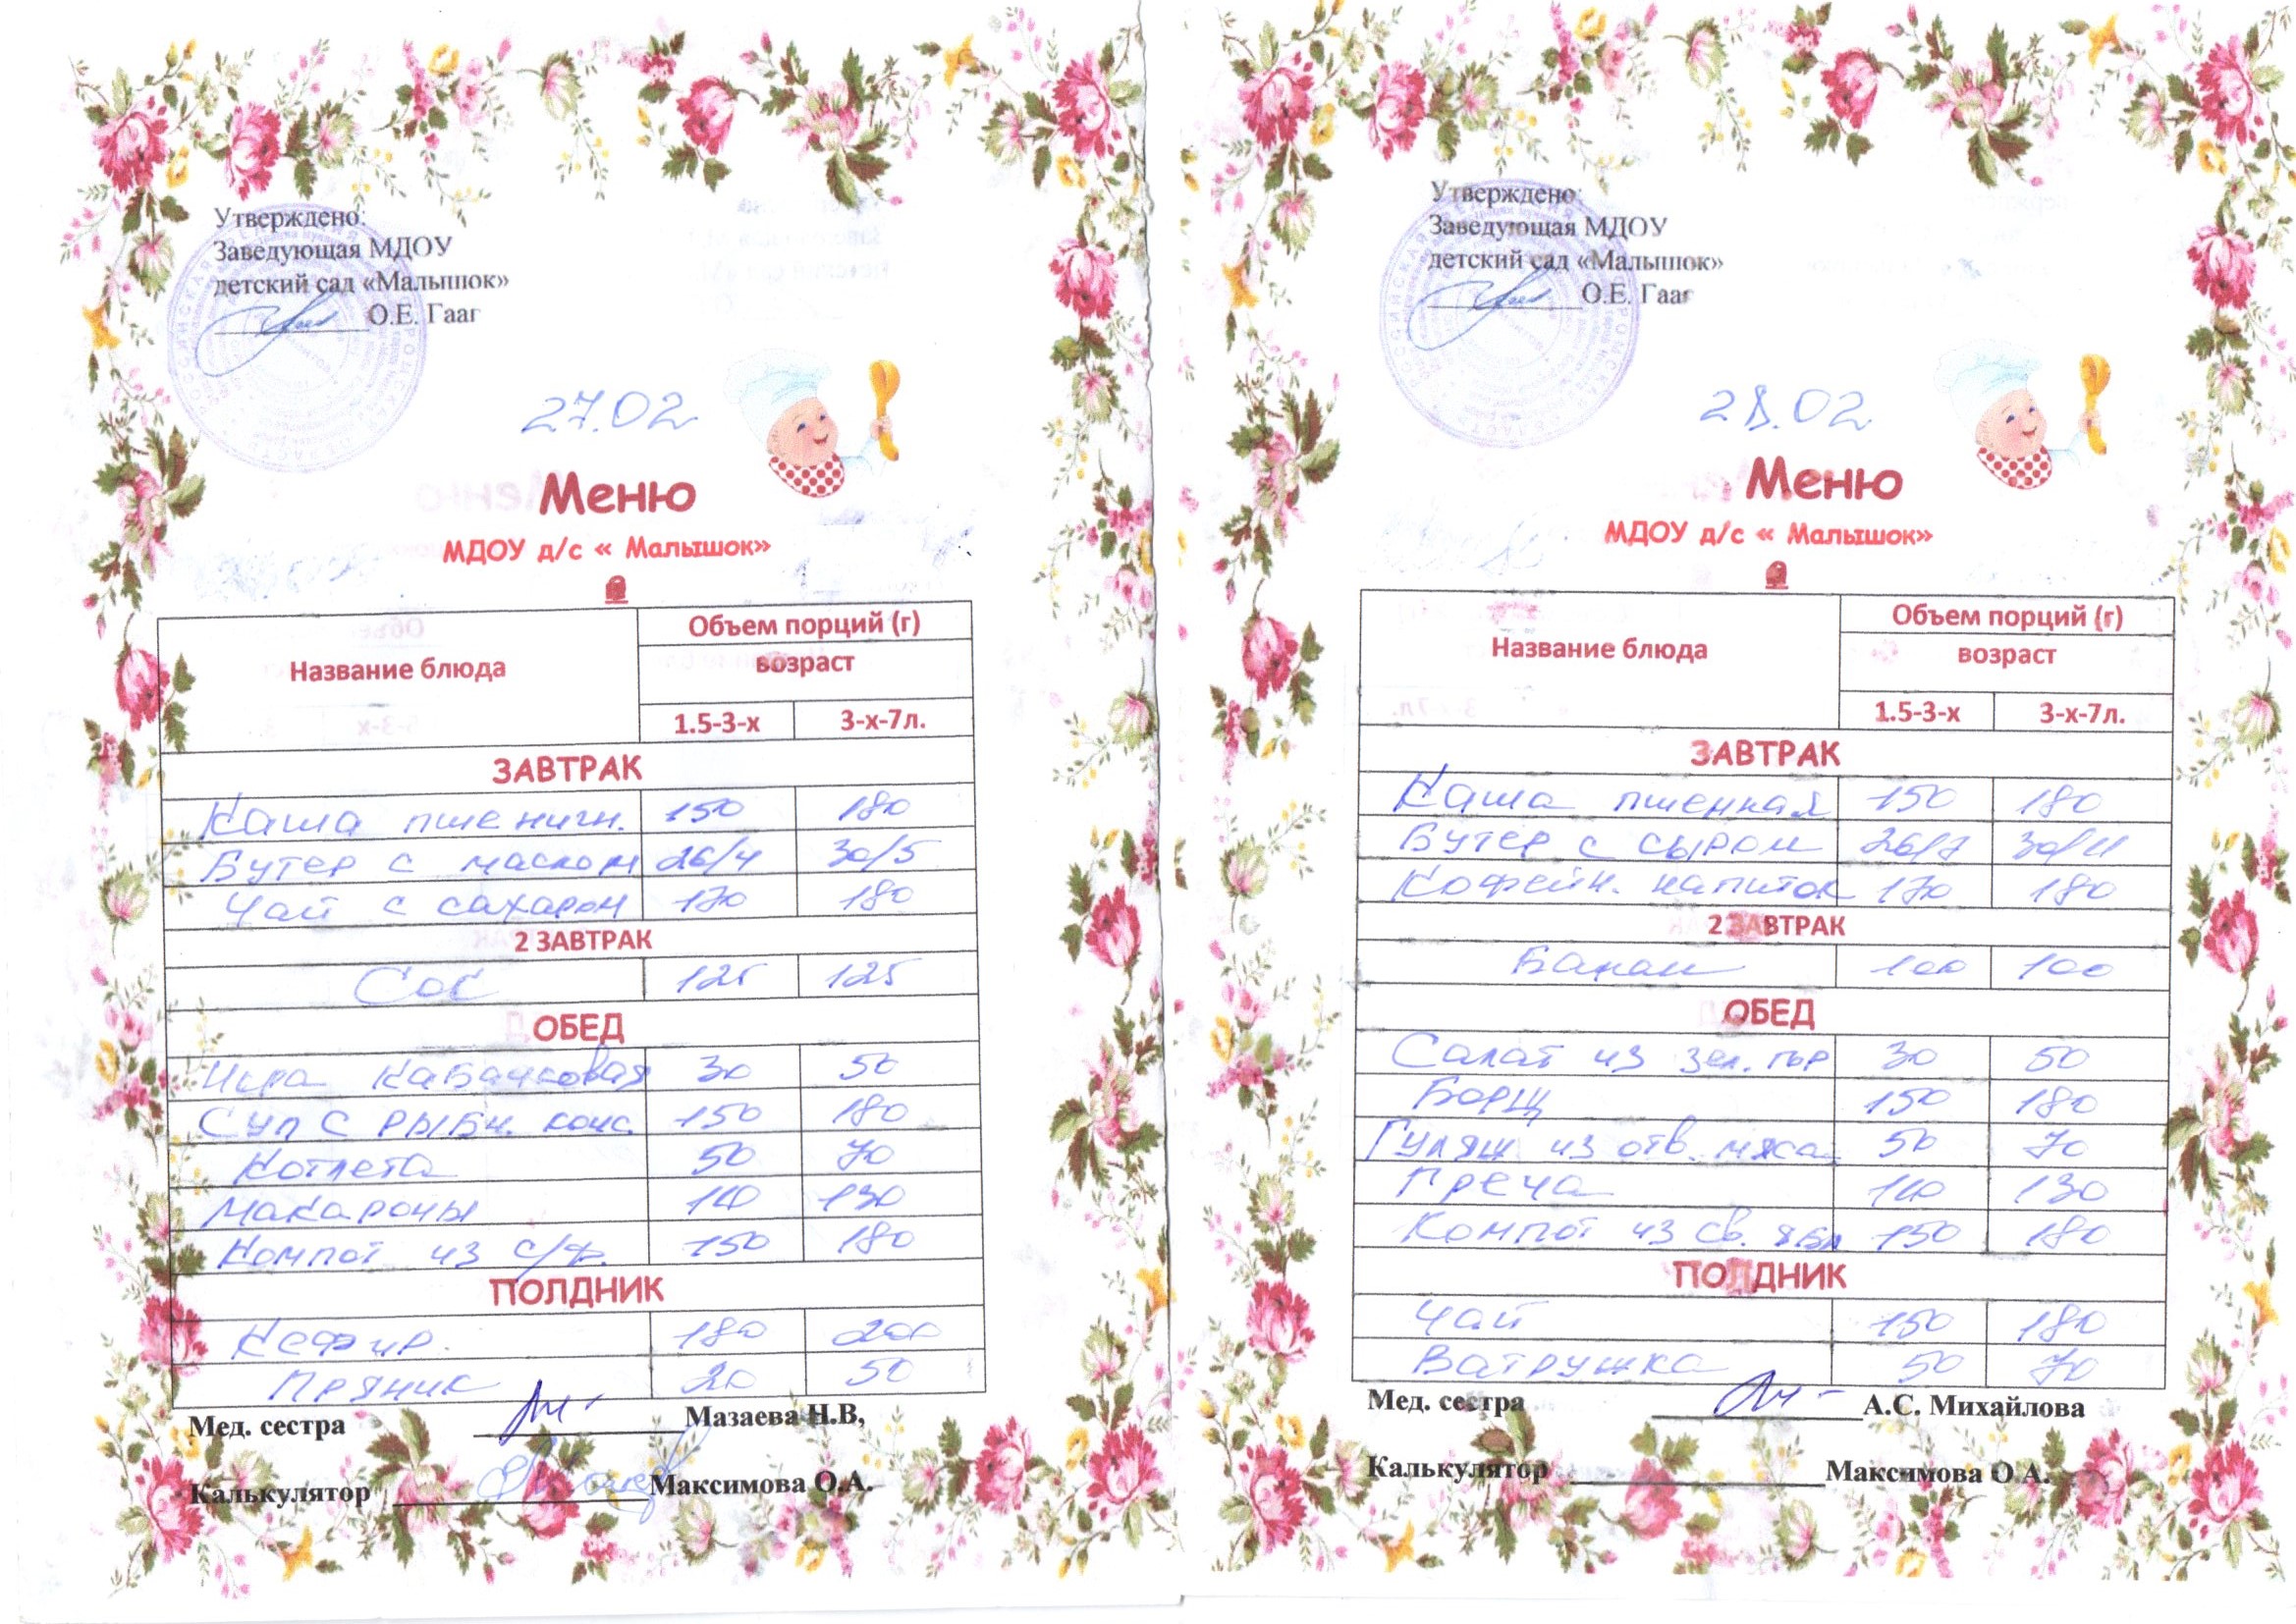 Утверждено:
Заведующая МДОУ
детский сад «Малышок»
О.Е. Гааг
27.02
Меню
МДОУ д/с « Малышок»
Название блюда
Объем порций (г)
возраст
1.5-3-х 3-х-7л.
ЗАВТРАК
Каша пшеничн. 150 180
Бутер с маслом 26/4 30/5
Чай с сахаром 170 180
2 ЗАВТРАК
Сос 125 125
ОБЕД
Икра кабачковая 30 50
Суп с рыбн. конс. 150 180
Котлета 50 70
Макароны 110 130
Компот из с/ф. 150 180
ПОЛДНИК
Кефир. 180 200
Пряник 20 50
Мед. сестра Мазаева Н.В,
Калькулятор Максимова О.А.
Утверждено:
Заведующая МДОУ
детский сад «Малышок»
О.Е. Гааг
28.02
Меню
МДОУ д/с « Малышок»
Название блюда
Объем порций (г)
возраст
1.5-3-х 3-х-7л.
ЗАВТРАК
Каша пшенная 150 180
Бутер с сыром 26/7 30/11
Кофейн. напиток 170 180
2 ЗАВТРАК
Банан 100 100
ОБЕД
Салат из зел. гор 30 50
Борщ 150 180
Гуляш из отв. мяса 50 70
Греча 110 130
Компот из св. ябл 150 180
ПОЛДНИК
Чай 150 180
Ватрушка 50 70
Мед. сестра А.С. Михайлова
Калькулятор Максимова О.А.